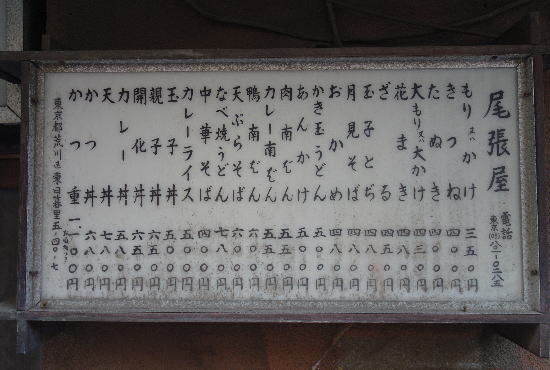 尾張屋
電話
東京
もり又ハかけ 三五〇円
きつね 四〇〇円
たぬき 四〇〇円
大もり又ハ大かけ 四三〇円
花まき 四八〇円
ざる 四五〇円
玉子とぢ 四八〇円
月見そば 四八〇円
おかめ 四八〇円
かき玉うどん 五〇〇円
あんかけ 五〇〇円
肉南ばん 五五〇円
カレー南ばん 五五〇円
鴨南ばん 六〇〇円
天ぷらそば 六〇〇円
なべ焼うどん 七八〇円
中華そば 四〇〇円
カレーライス 五〇〇円
玉子丼 五〇〇円
親子丼 六五〇円
開化丼 六五〇円
カレー丼 五八〇円
天丼 七八〇円
かつ丼 六八〇円
かつ重
東京都荒川区東日暮里五ノ四〇ノ七